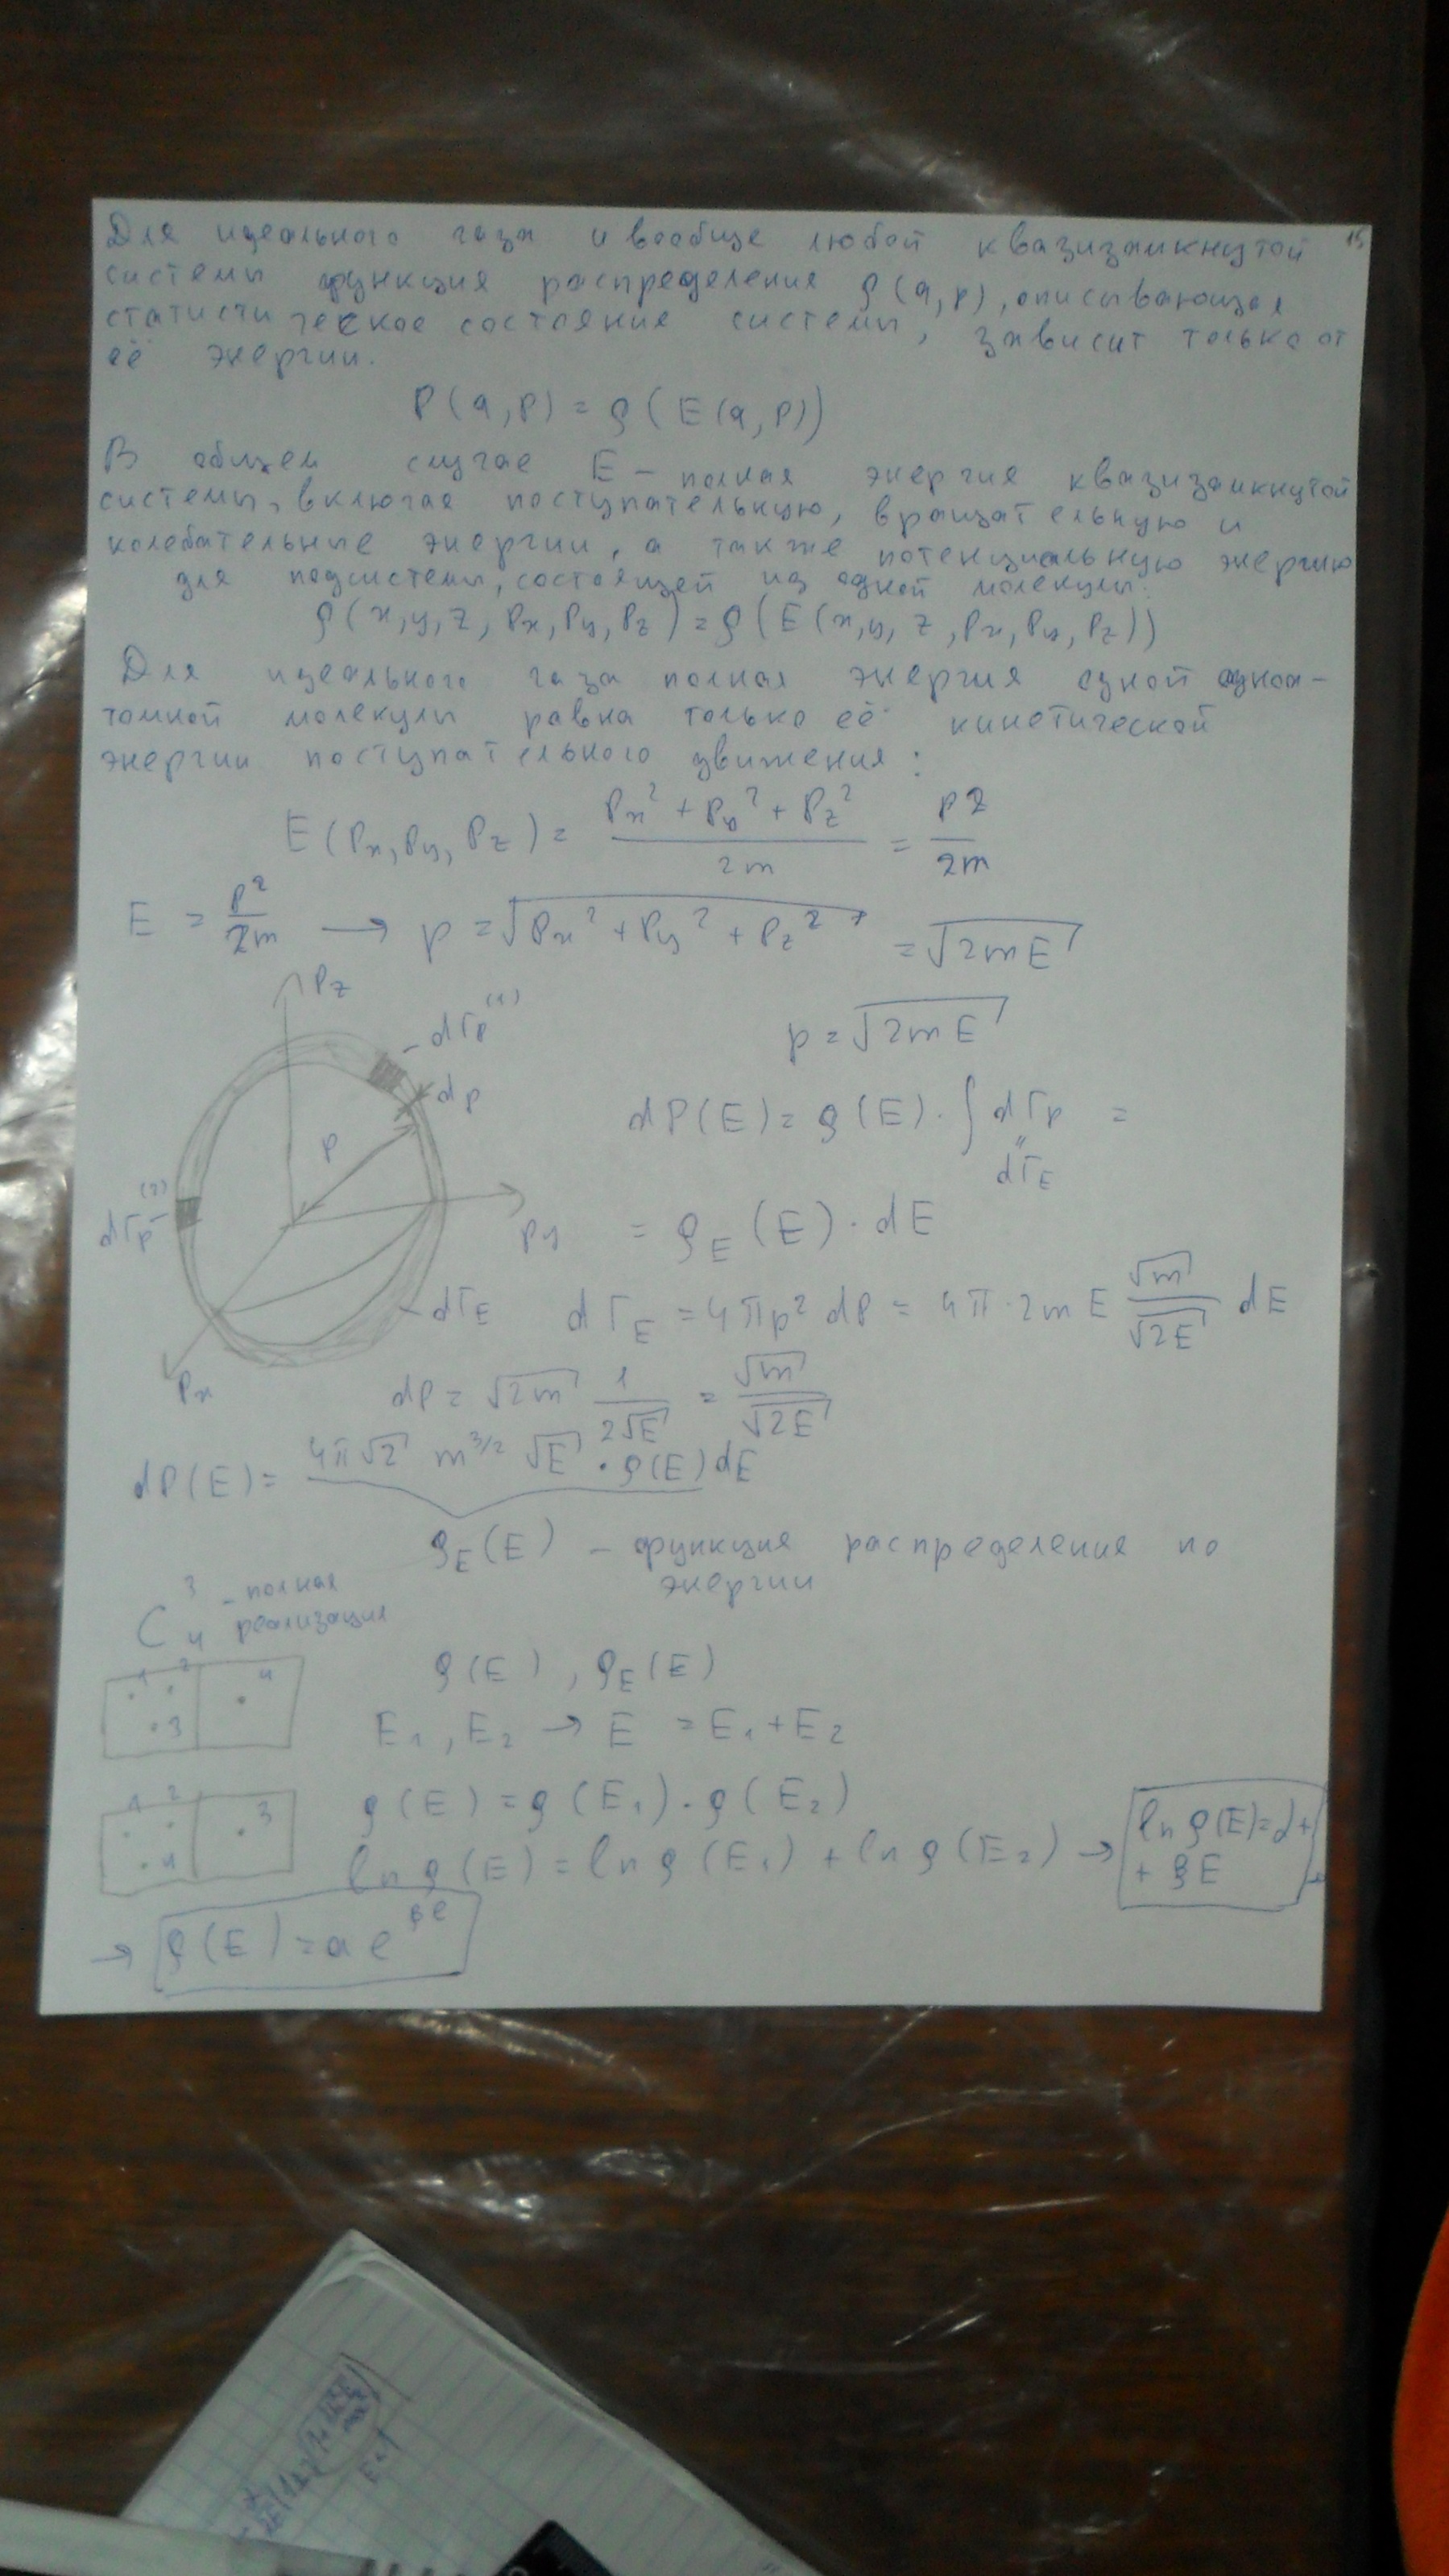 15
Для идеального газа и вообще любой квазизамкнутой
системы функция распределения ρ(q,p), описывающая
статистическое состояние системы, зависит только от
её энергии.
ρ(q,p) = ρ(E(q,p))
В общем случае E – полная энергия квазизамкнутой
системы, включая поступательную, вращательную и
колебательные энергии, а также потенциальную энергию
для подсистемы, состоящей из одной молекулы.
ρ(x,y,z,Px,Py,Pz) = ρ(E(x,y,z,Px,Py,Pz))
Для идеального газа полная энергия одной одноа-
томной молекулы равна только её кинетической
энергии поступательного движения:
E(Px,Py,Pz) = (Px² + Py² + Pz²)/2m = P²/2m
E = P²/2m → p = √(Px² + Py² + Pz²) = √(2mE)
Pz
dГp(1)
p = √(2mE)
dp
p
dP(E) = ρ(E) · ∫ dГp =
"
dГE
dГp(2)
Py
= ρE(E) · dE
dГE
dГE = 4πp² dp = 4π·2mE √m/√(2E) dE
Px
dp = √(2m) 1/(2√E) = √m/√(2E)
dP(E) = 4π√2 m^3/2 √E · ρ(E) dE
ρE(E) – функция распределения по
энергии
C₄³ – полная
реализация
1 2 3 4
ρ(E), ρE(E)
E₁, E₂ → E = E₁ + E₂
1 2 4 3
ρ(E) = ρ(E₁) · ρ(E₂)
ln ρ(E) = ln ρ(E₁) + ln ρ(E₂) → ln ρ(E) = α +
+ βE
→ ρ(E) = a e^βE